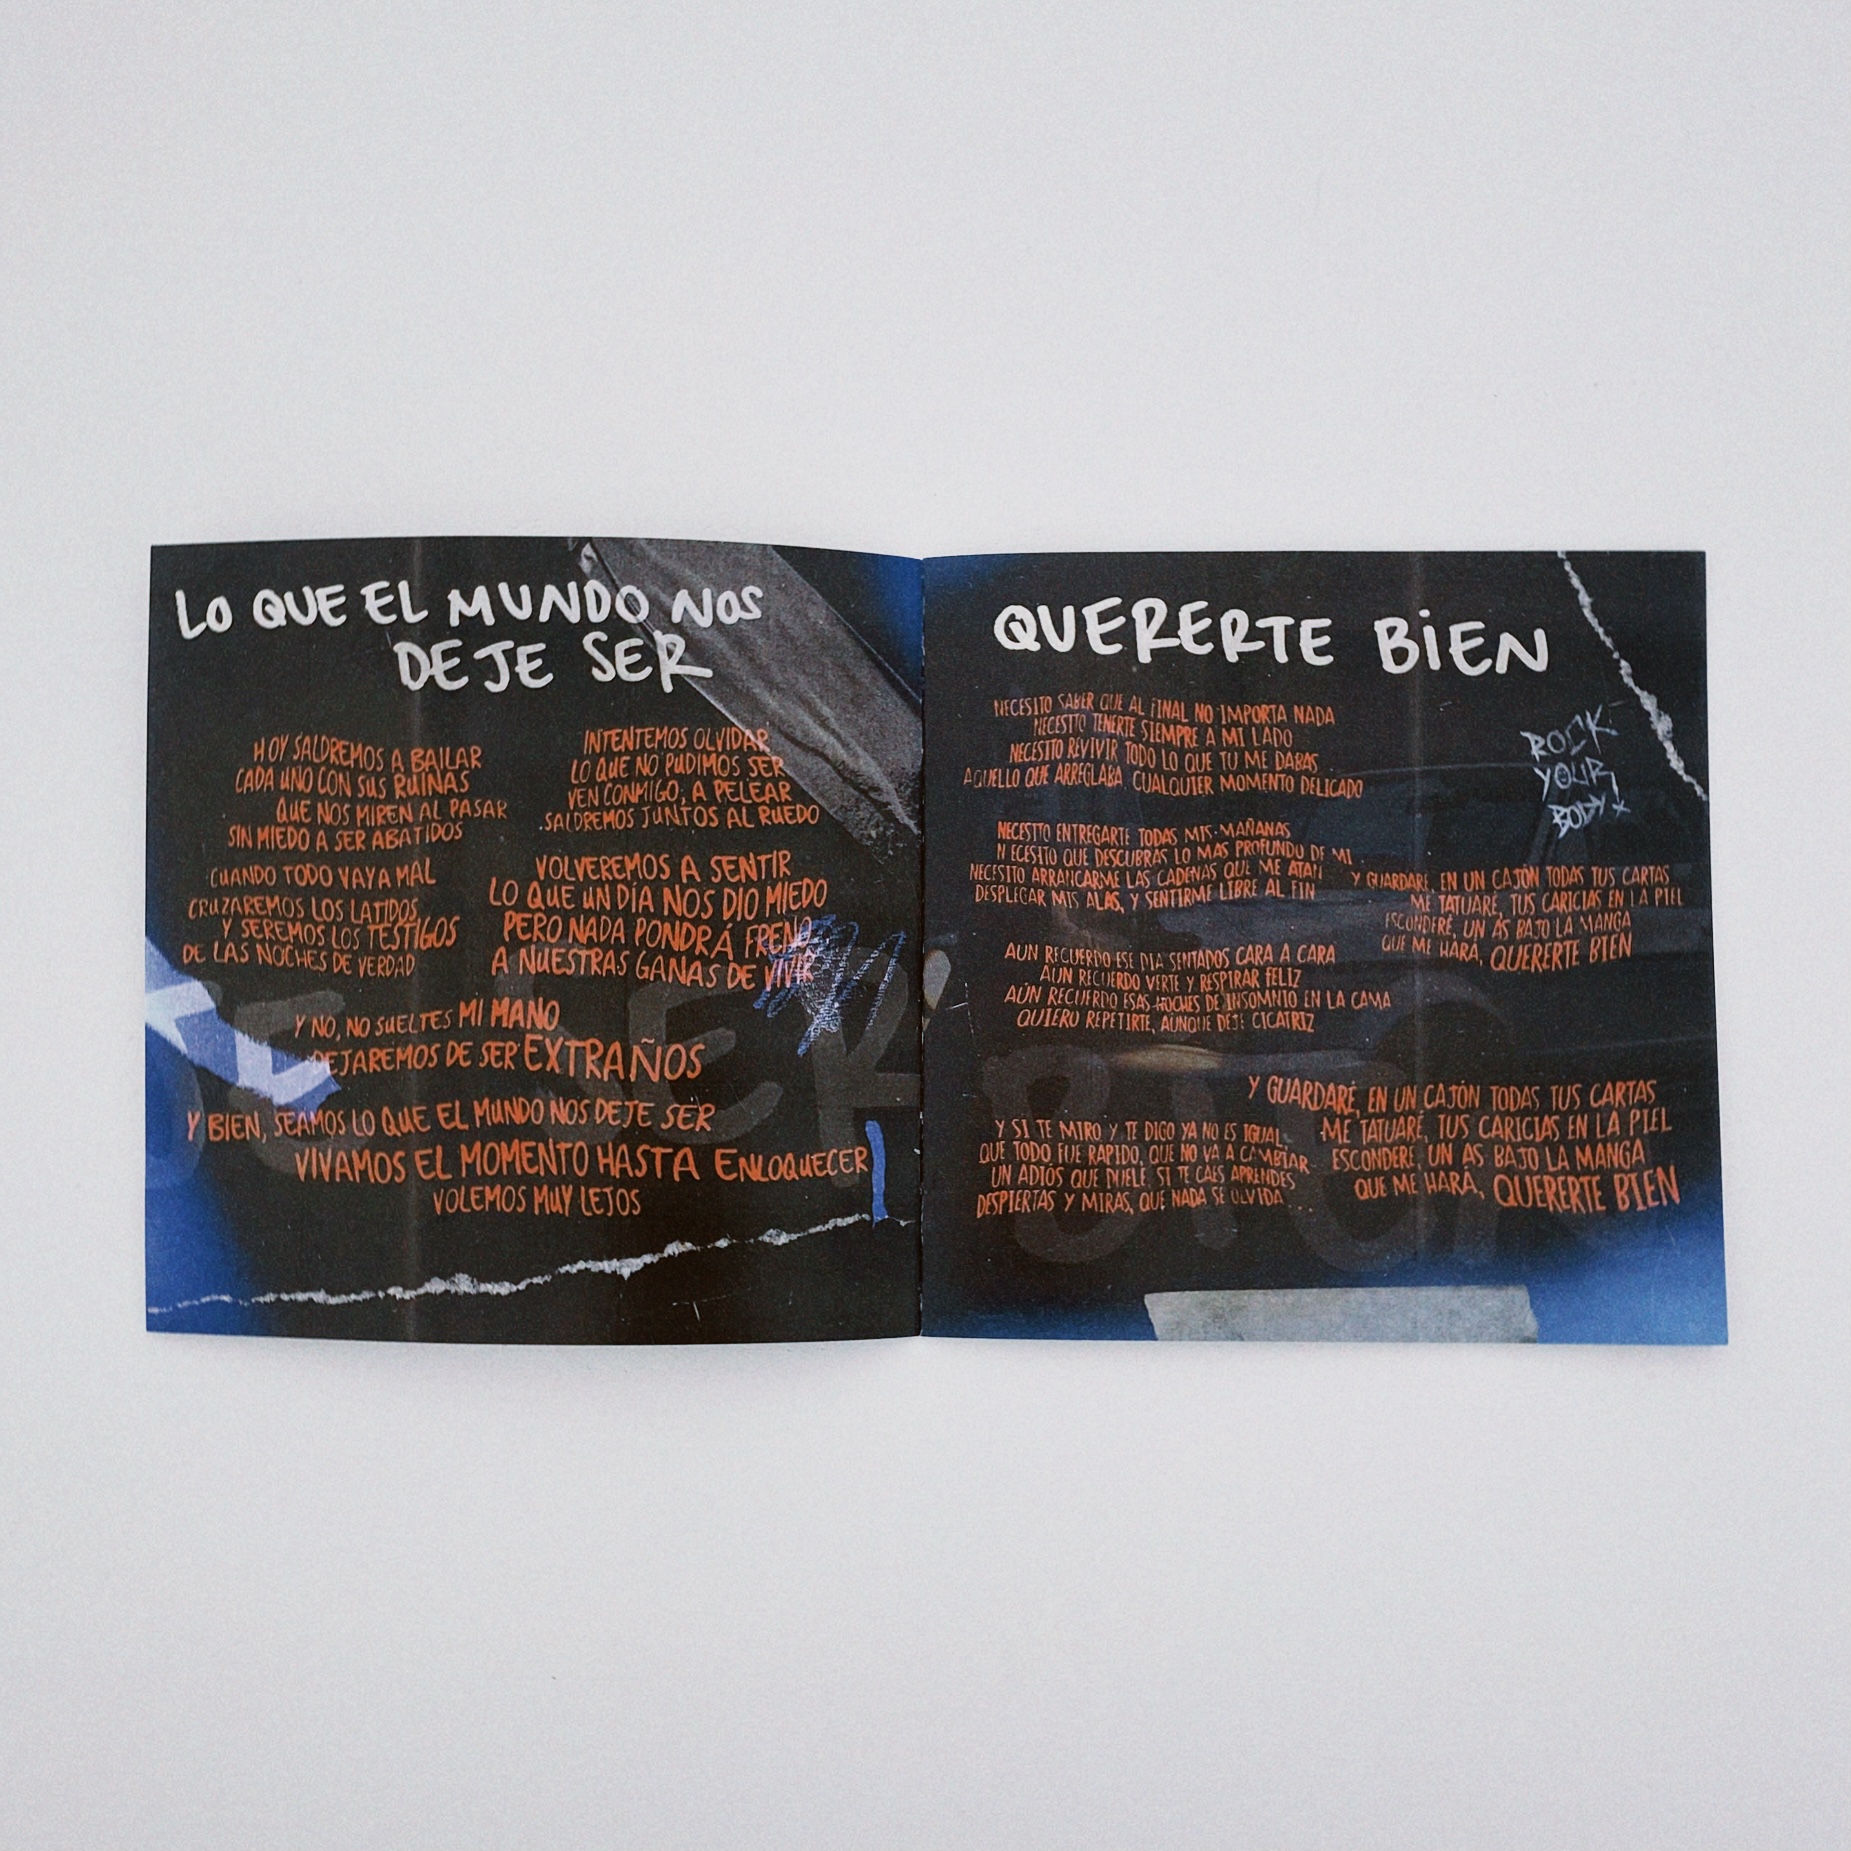 LO QUE EL MUNDO NOS
DEJE SER
HOY SALDREMOS A BAILAR
CADA UNO CON SUS RUINAS
QUE NOS MIREN AL PASAR
SIN MIEDO A SER ABATIDOS
CUANDO TODO VAYA MAL
CRUZAREMOS LOS LATIDOS
Y SEREMOS LOS TESTIGOS
DE LAS NOCHES DE VERDAD
INTENTEMOS OLVIDAR
LO QUE NO PUDIMOS SER
VEN CONMIGO, A PELEAR
SALDREMOS JUNTOS AL RUEDO
VOLVEREMOS A SENTIR
LO QUE UN DÍA NOS DIO MIEDO
PERO NADA PONDRÁ FRENO
A NUESTRAS GANAS DE VIVIR
Y NO, NO SUELTES MI MANO
DEJAREMOS DE SER EXTRAÑOS
Y BIEN, SEAMOS LO QUE EL MUNDO NOS DEJE SER
VIVAMOS EL MOMENTO HASTA ENLOQUECER
VOLEMOS MUY LEJOS
QUERERTE BIEN
NECESITO SABER QUE AL FINAL NO IMPORTA NADA
NECESITO TENERTE SIEMPRE A MI LADO
NECESITO REVIVIR TODO LO QUE TU ME DABAS
AQUELLO QUE ARREGLABA CUALQUIER MOMENTO DELICADO
NECESITO ENTREGARTE TODAS MIS MAÑANAS
NECESITO QUE DESCUBRAS LO MAS PROFUNDO DE MI
NECESITO ARRANCARME LAS CADENAS QUE ME ATAN
DESPLEGAR MIS ALAS, Y SENTIRME LIBRE AL FIN
AUN RECUERDO ESE DIA SENTADOS CARA A CARA
AUN RECUERDO VERTE Y RESPIRAR FELIZ
AÚN RECUERDO ESAS NOCHES DE INSOMNIO EN LA CAMA
QUIERO REPETIRTE, AUNQUE DEJE CICATRIZ
Y SI TE MIRO Y TE DIGO YA NO ES IGUAL
QUE TODO FUE RAPIDO, QUE NO VA A CAMBIAR
UN ADIÓS QUE DUELE, SI TE CAES APRENDES
DESPIERTAS Y MIRAS, QUE NADA SE OLVIDA
ROCK
YOUR
BODY x
Y GUARDARÉ, EN UN CAJÓN TODAS TUS CARTAS
ME TATUARÉ, TUS CARICIAS EN LA PIEL
ESCONDERÉ, UN AS BAJO LA MANGA
QUE ME HARÁ, QUERERTE BIEN
Y GUARDARÉ, EN UN CAJÓN TODAS TUS CARTAS
ME TATUARÉ, TUS CARICIAS EN LA PIEL
ESCONDERÉ, UN AS BAJO LA MANGA
QUE ME HARÁ, QUERERTE BIEN